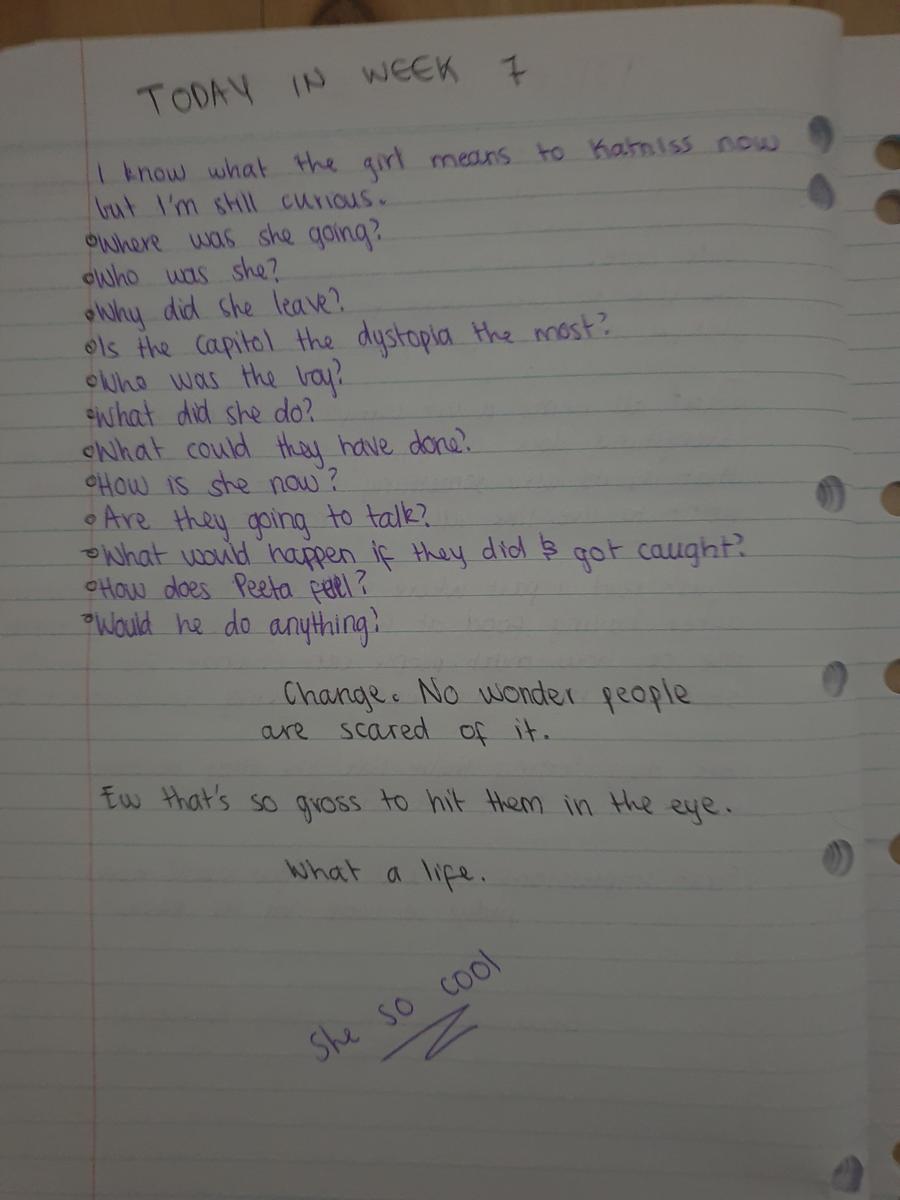 TODAY IN WEEK 7
I know what the girl means to Katniss now
but I'm still curious.
Where was she going?
Who was she?
Why did she leave?
Is the Capitol the dystopia the most?
Who was the boy?
What did she do?
What could they have done?
How is she now?
Are they going to talk?
What would happen if they did & got caught?
How does Peeta feel?
Would he do anything?
Change. No wonder people
are scared of it.
Ew that's so gross to hit them in the eye.
What a life.
She so cool